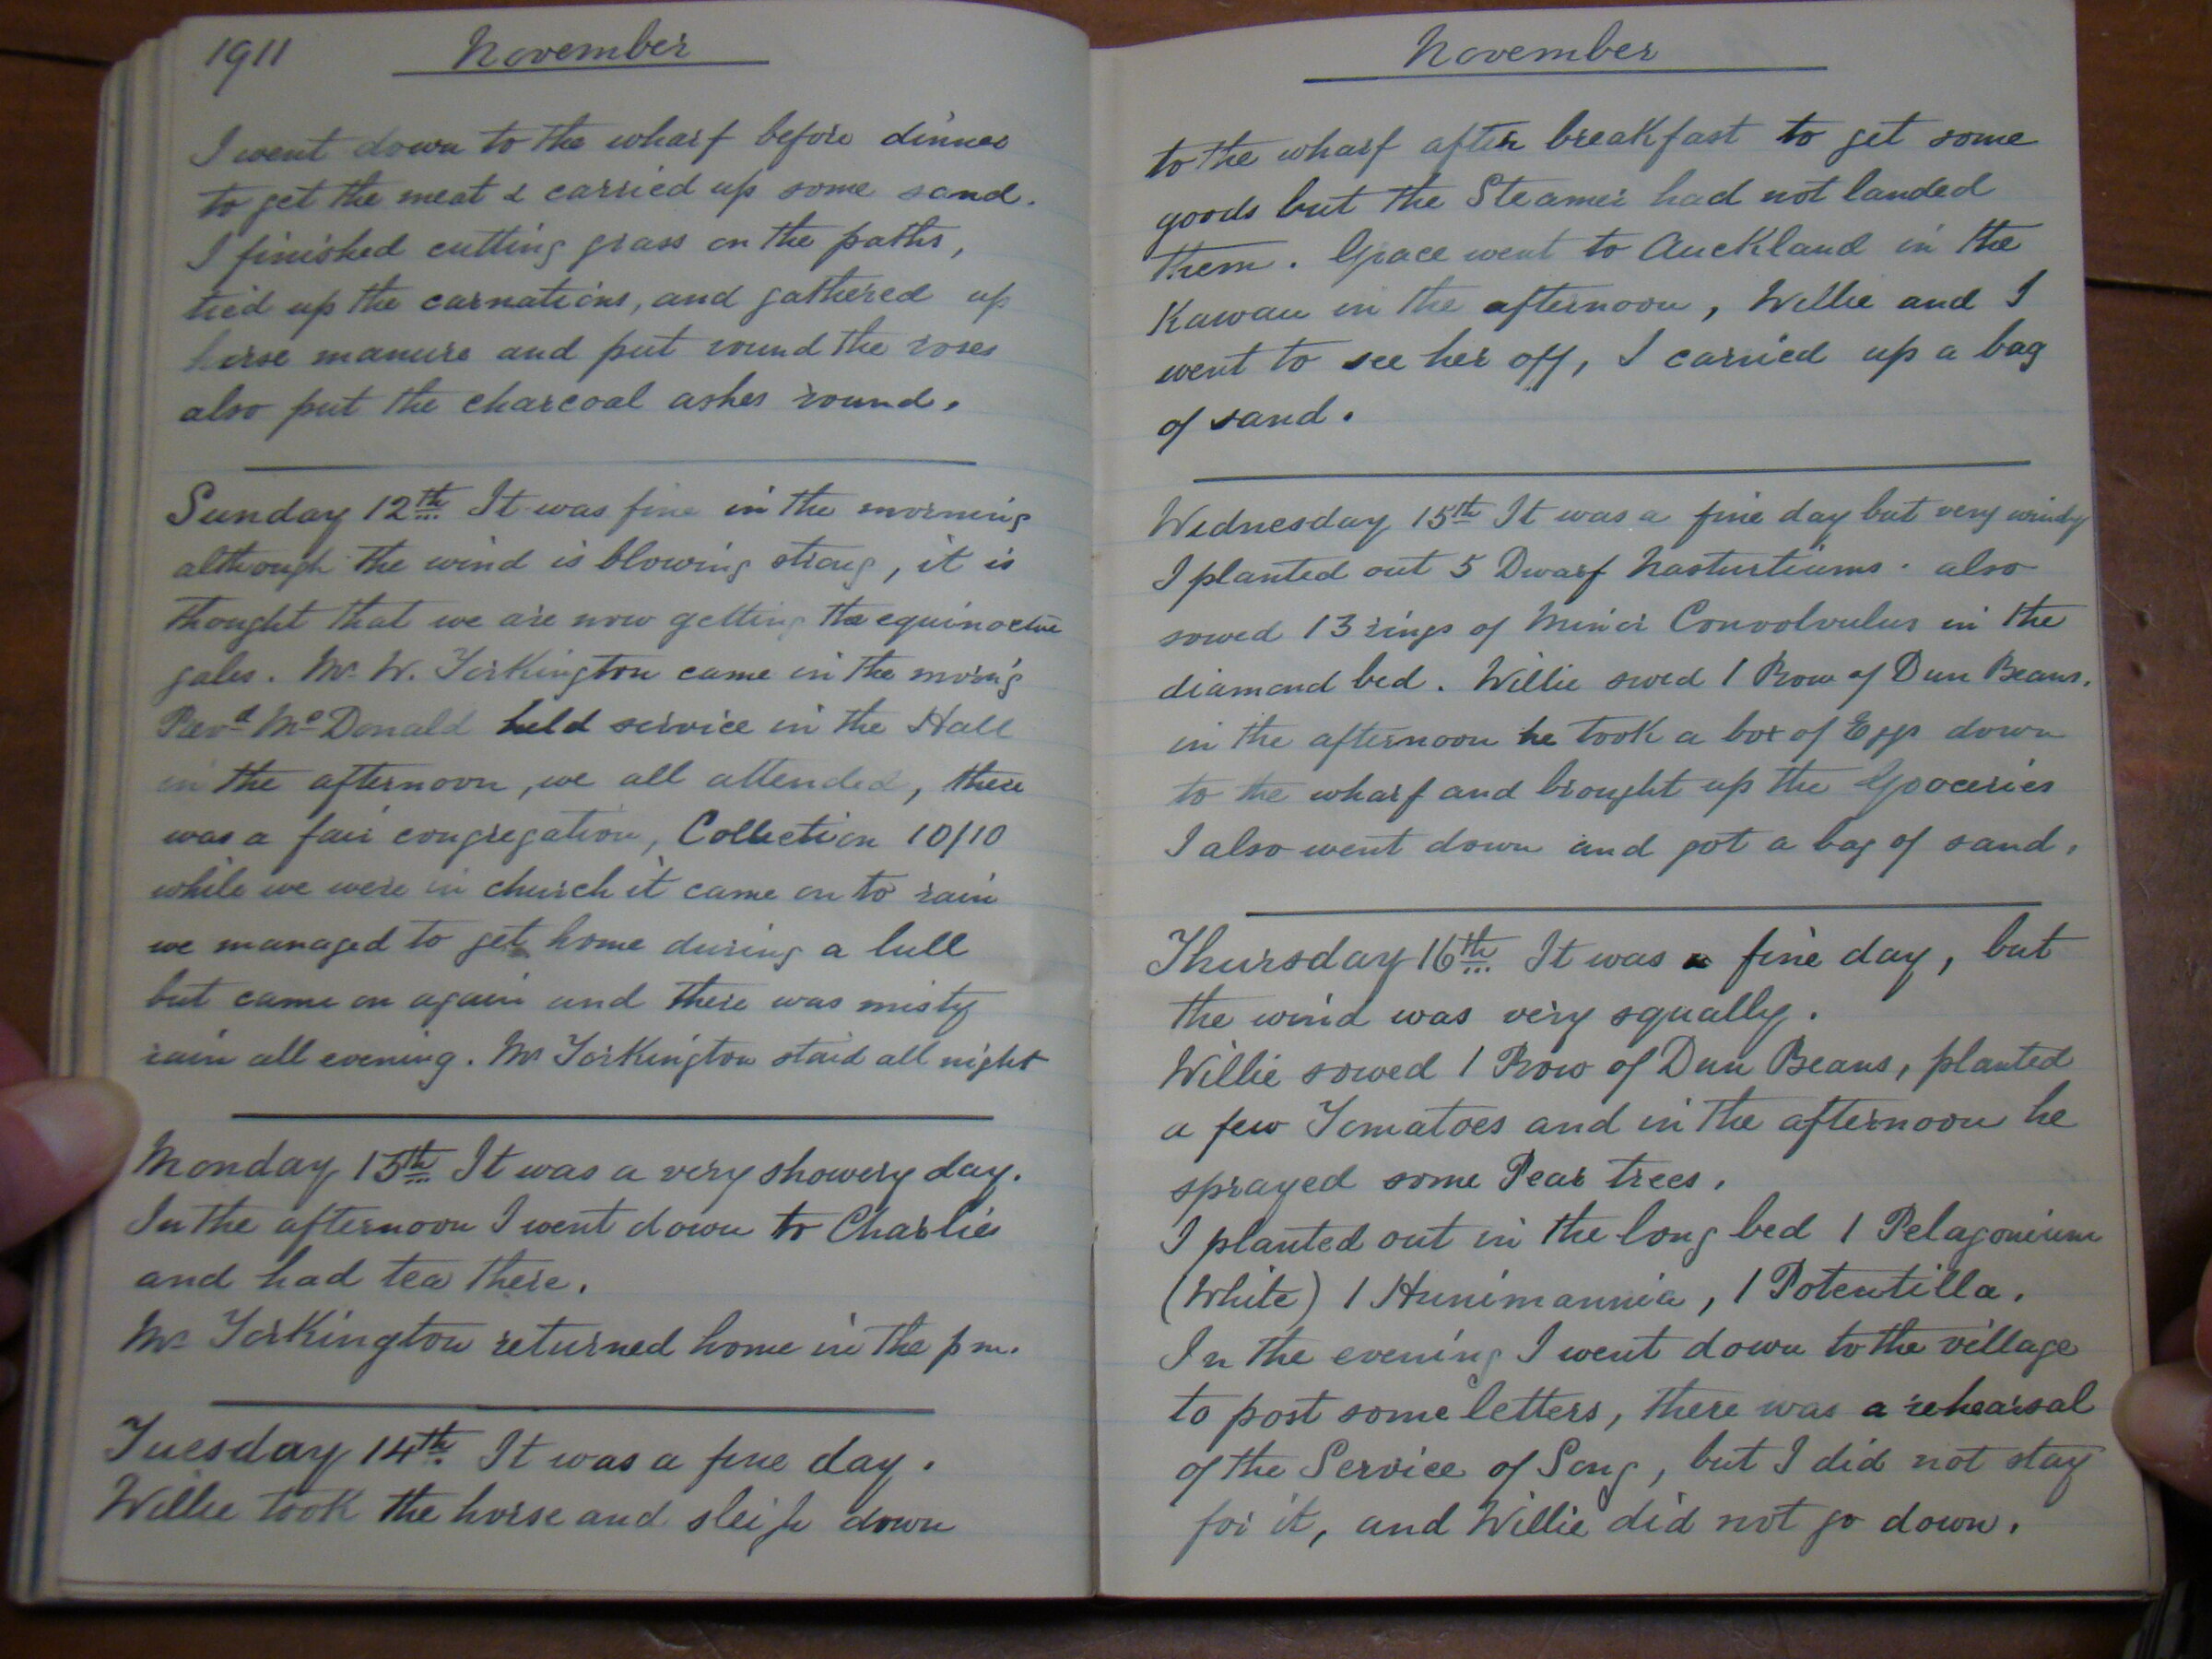 1911 November
I went down to the wharf before dinner
to get the meat & carried up some sand.
I finished cutting grass on the paths,
tied up the carnations, and gathered up
horse manure and put round the roses
also put the charcoal ashes round.
Sunday 12th It was fine in the morning
although the wind is blowing strong, it is
thought that we are now getting the
gales. Mr W. Torkington came in the
Revd McDonald held service in the Hall
in the afternoon, we all attended, there
was a fair congregation, Collection 10/10
while we were in church it came on to rain
we managed to get home during a lull
but came on again and there was misty
rain all evening. Mr Torkington staid all night
Monday 13th It was a very showery day.
In the afternoon I went down to Charlies
and had tea there.
Mr Torkington returned home in the pm.
Tuesday 14th It was a fine day.
Willie took the horse and sleigh down
November
to the wharf after breakfast to get some
goods but the Steamer had not landed
them. Grace went to Auckland in the
Kawau in the afternoon, Willie and I
went to see her off, I carried up a bag
of sand.
Wednesday 15th It was a fine day but very windy
I planted out 5 Dwarf Nasturtiums. also
sowed 13 rings of Minor Convolvulus in the
diamond bed. Willie sowed 1 Row of Dun Beans.
in the afternoon he took a box of Eggs down
to the wharf and brought up the Groceries
I also went down and got a bag of sand.
Thursday 16th It was a fine day, but
the wind was very squally.
Willie sowed 1 Row of Dun Beans, planted
a few Tomatoes and in the afternoon he
sprayed some Pear trees.
I planted out in the long bed 1 Pelagonium
(White) 1 Hunimannia, 1 Potentilla.
In the evening I went down to the village
to post some letters, there was a rehearsal
of the Service of Song, but I did not stay
for it, and Willie did not go down.